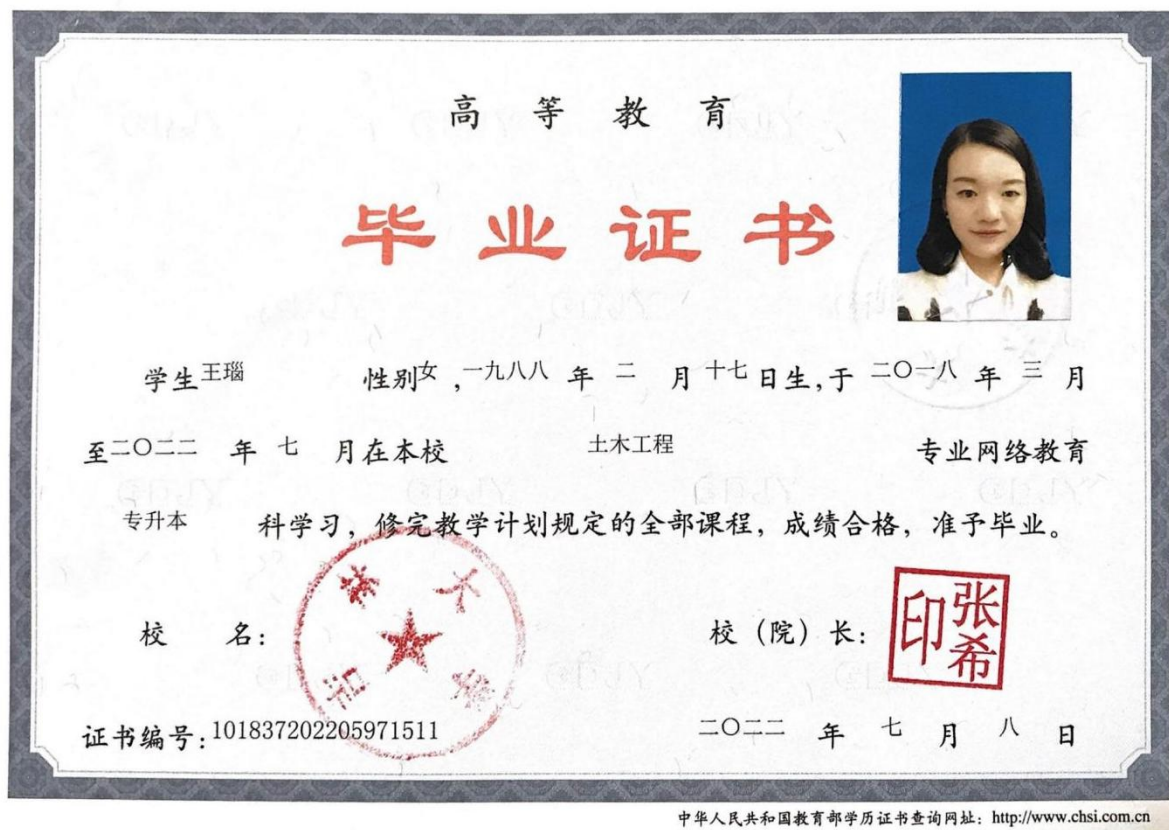 高等教育
毕业证书
学生 王瑙 性别 女 ,一九八八 年 二 月 十七 日生,于 二〇一八 年 三 月
至 二〇二二 年 七 月在本校 土木工程 专业网络教育
专升本 科学习，修完教学计划规定的全部课程，成绩合格，准予毕业。
校 名： 吉林大学 校（院）长： 张希印
证书编号：101837202205971511 二〇二二 年 七 月 八 日
中华人民共和国教育部学历证书查询网址：http://www.chsi.com.cn